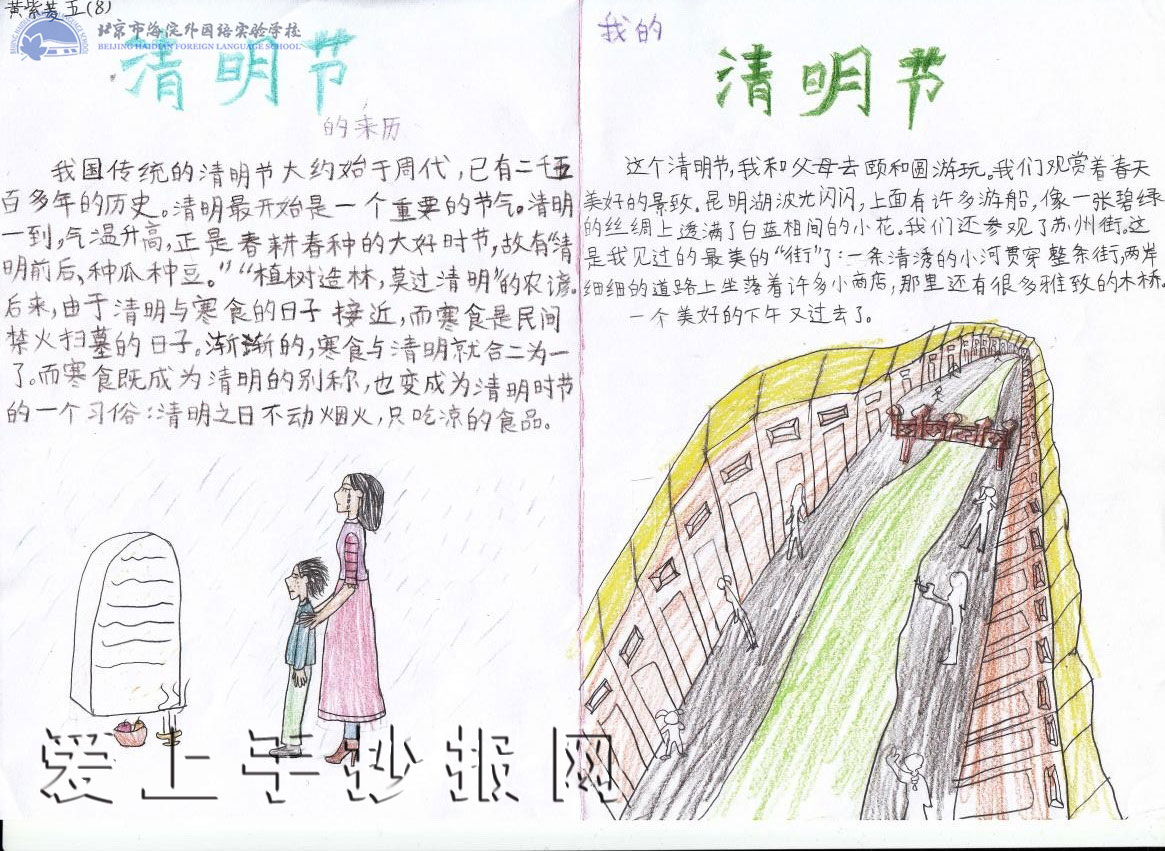 黄紫菁 五(8)
北京市海淀外国语实验学校
BEIJING HAIDIAN FOREIGN LANGUAGE SCHOOL
清明节
的来历
我国传统的清明节大约始于周代,已有二千五
百多年的历史。清明最开始是一个重要的节气。清明
一到,气温升高,正是春耕春种的大好时节,故有“清
明前后,种瓜种豆。”“植树造林,莫过清明”的农谚。
后来,由于清明与寒食的日子接近,而寒食是民间
禁火扫墓的日子。渐渐的,寒食与清明就合二为一
了。而寒食既成为清明的别称,也变成为清明时节
的一个习俗:清明之日不动烟火,只吃凉的食品。
我的
清明节
这个清明节,我和父母去颐和圆游玩。我们观赏着春天
美好的景致.昆明湖波光闪闪,上面有许多游船,像一张碧绿
的丝绸上透满了白蓝相间的小花。我们还参观了苏州街.这
是我见过的最美的“街”了:一条清秀的小河贯穿整条街,两岸
细细的道路上坐落着许多小商店,那里还有很多雅致的木桥.
一个美好的下午又过去了。
爱上手抄报网